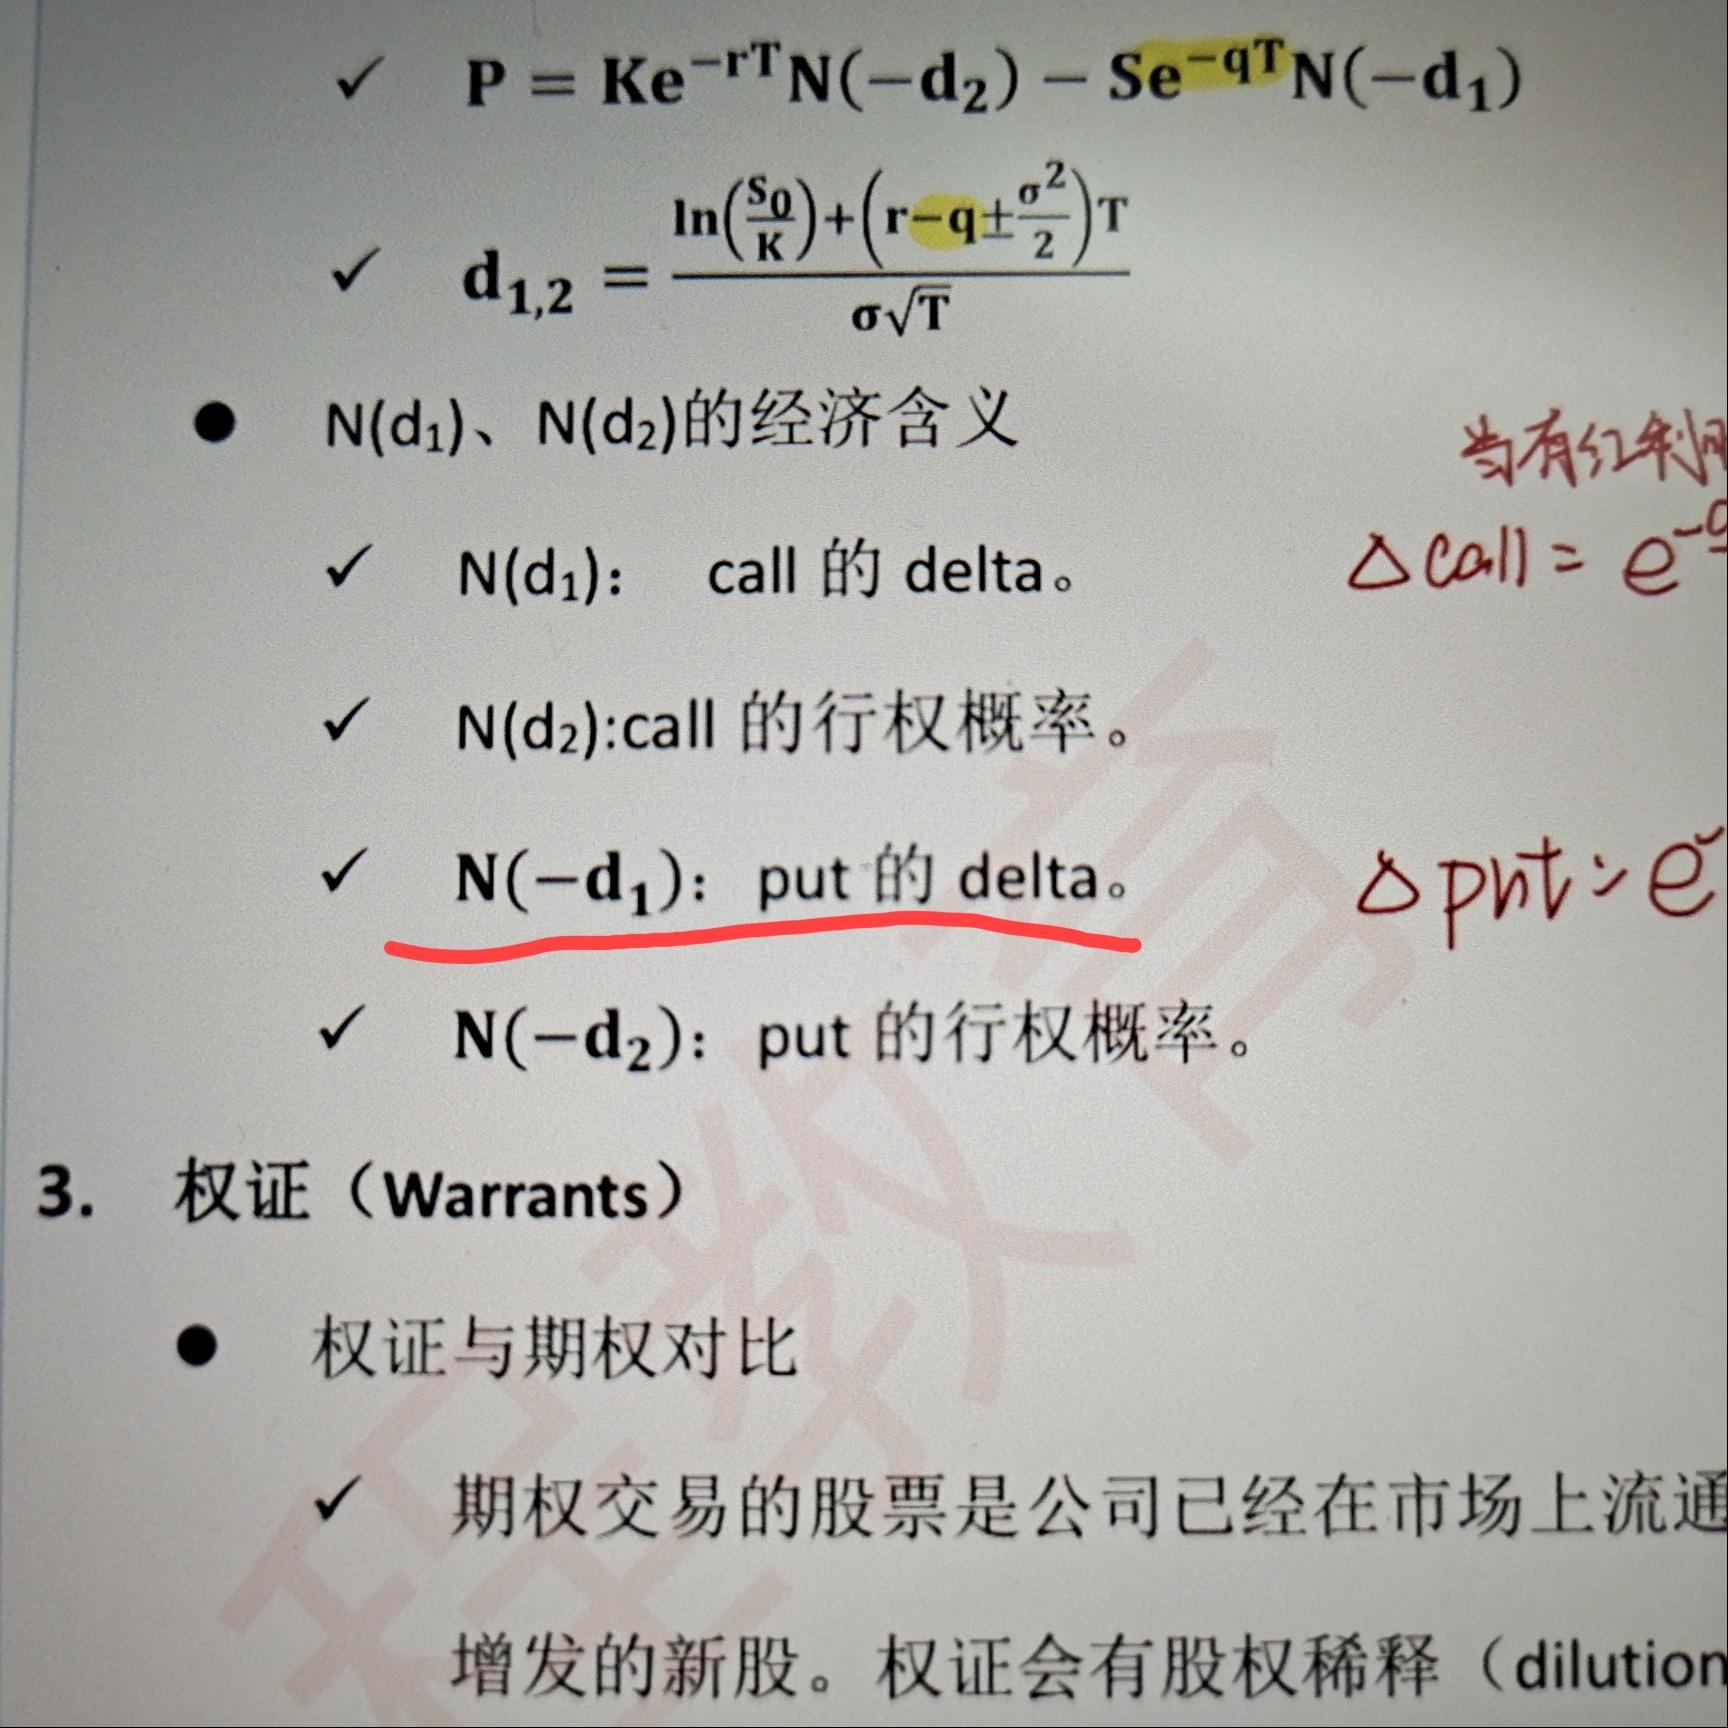 ✓ P = Ke^{-rT}N(-d₂) - Se^{-qT}N(-d₁)
✓ d_{1,2} = \frac{ln(\frac{S_0}{K})+(r-q±\frac{σ^2}{2})T}{σ√T}
● N(d₁)、N(d₂)的经济含义
当有红利时
✓ N(d₁)： call 的 delta。
Δcall = e
✓ N(d₂):call 的行权概率。
✓ N(-d₁)：put 的 delta。
Δput = e
✓ N(-d₂)：put 的行权概率。
3. 权证（Warrants）
● 权证与期权对比
✓ 期权交易的股票是公司已经在市场上流通
增发的新股。权证会有股权稀释（dilution
程教育